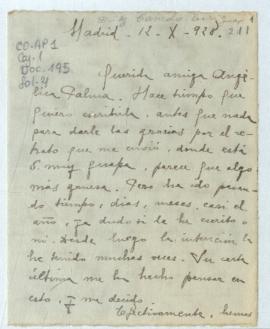 Madrid - 12 - X - 928.
211
CO-AP1
Caj. 1
Doc. 195
Fol. 4
Querida amiga Angé-
lica Palma. Hace tiempo que
quiero escribirle, antes que nada
para darle las gracias por el re-
trato que me envió, donde está
V. muy guapa, parece que algo
más gruesa. Pero ha ido pasan-
do tiempo, días, meses, casi el
año, y a dudo si le he escrito o
no. Desde luego la intención la
he tenido muchas veces. Su carta
última me ha hecho pensar en
esto, y me decido.
Efectivamente, hemos